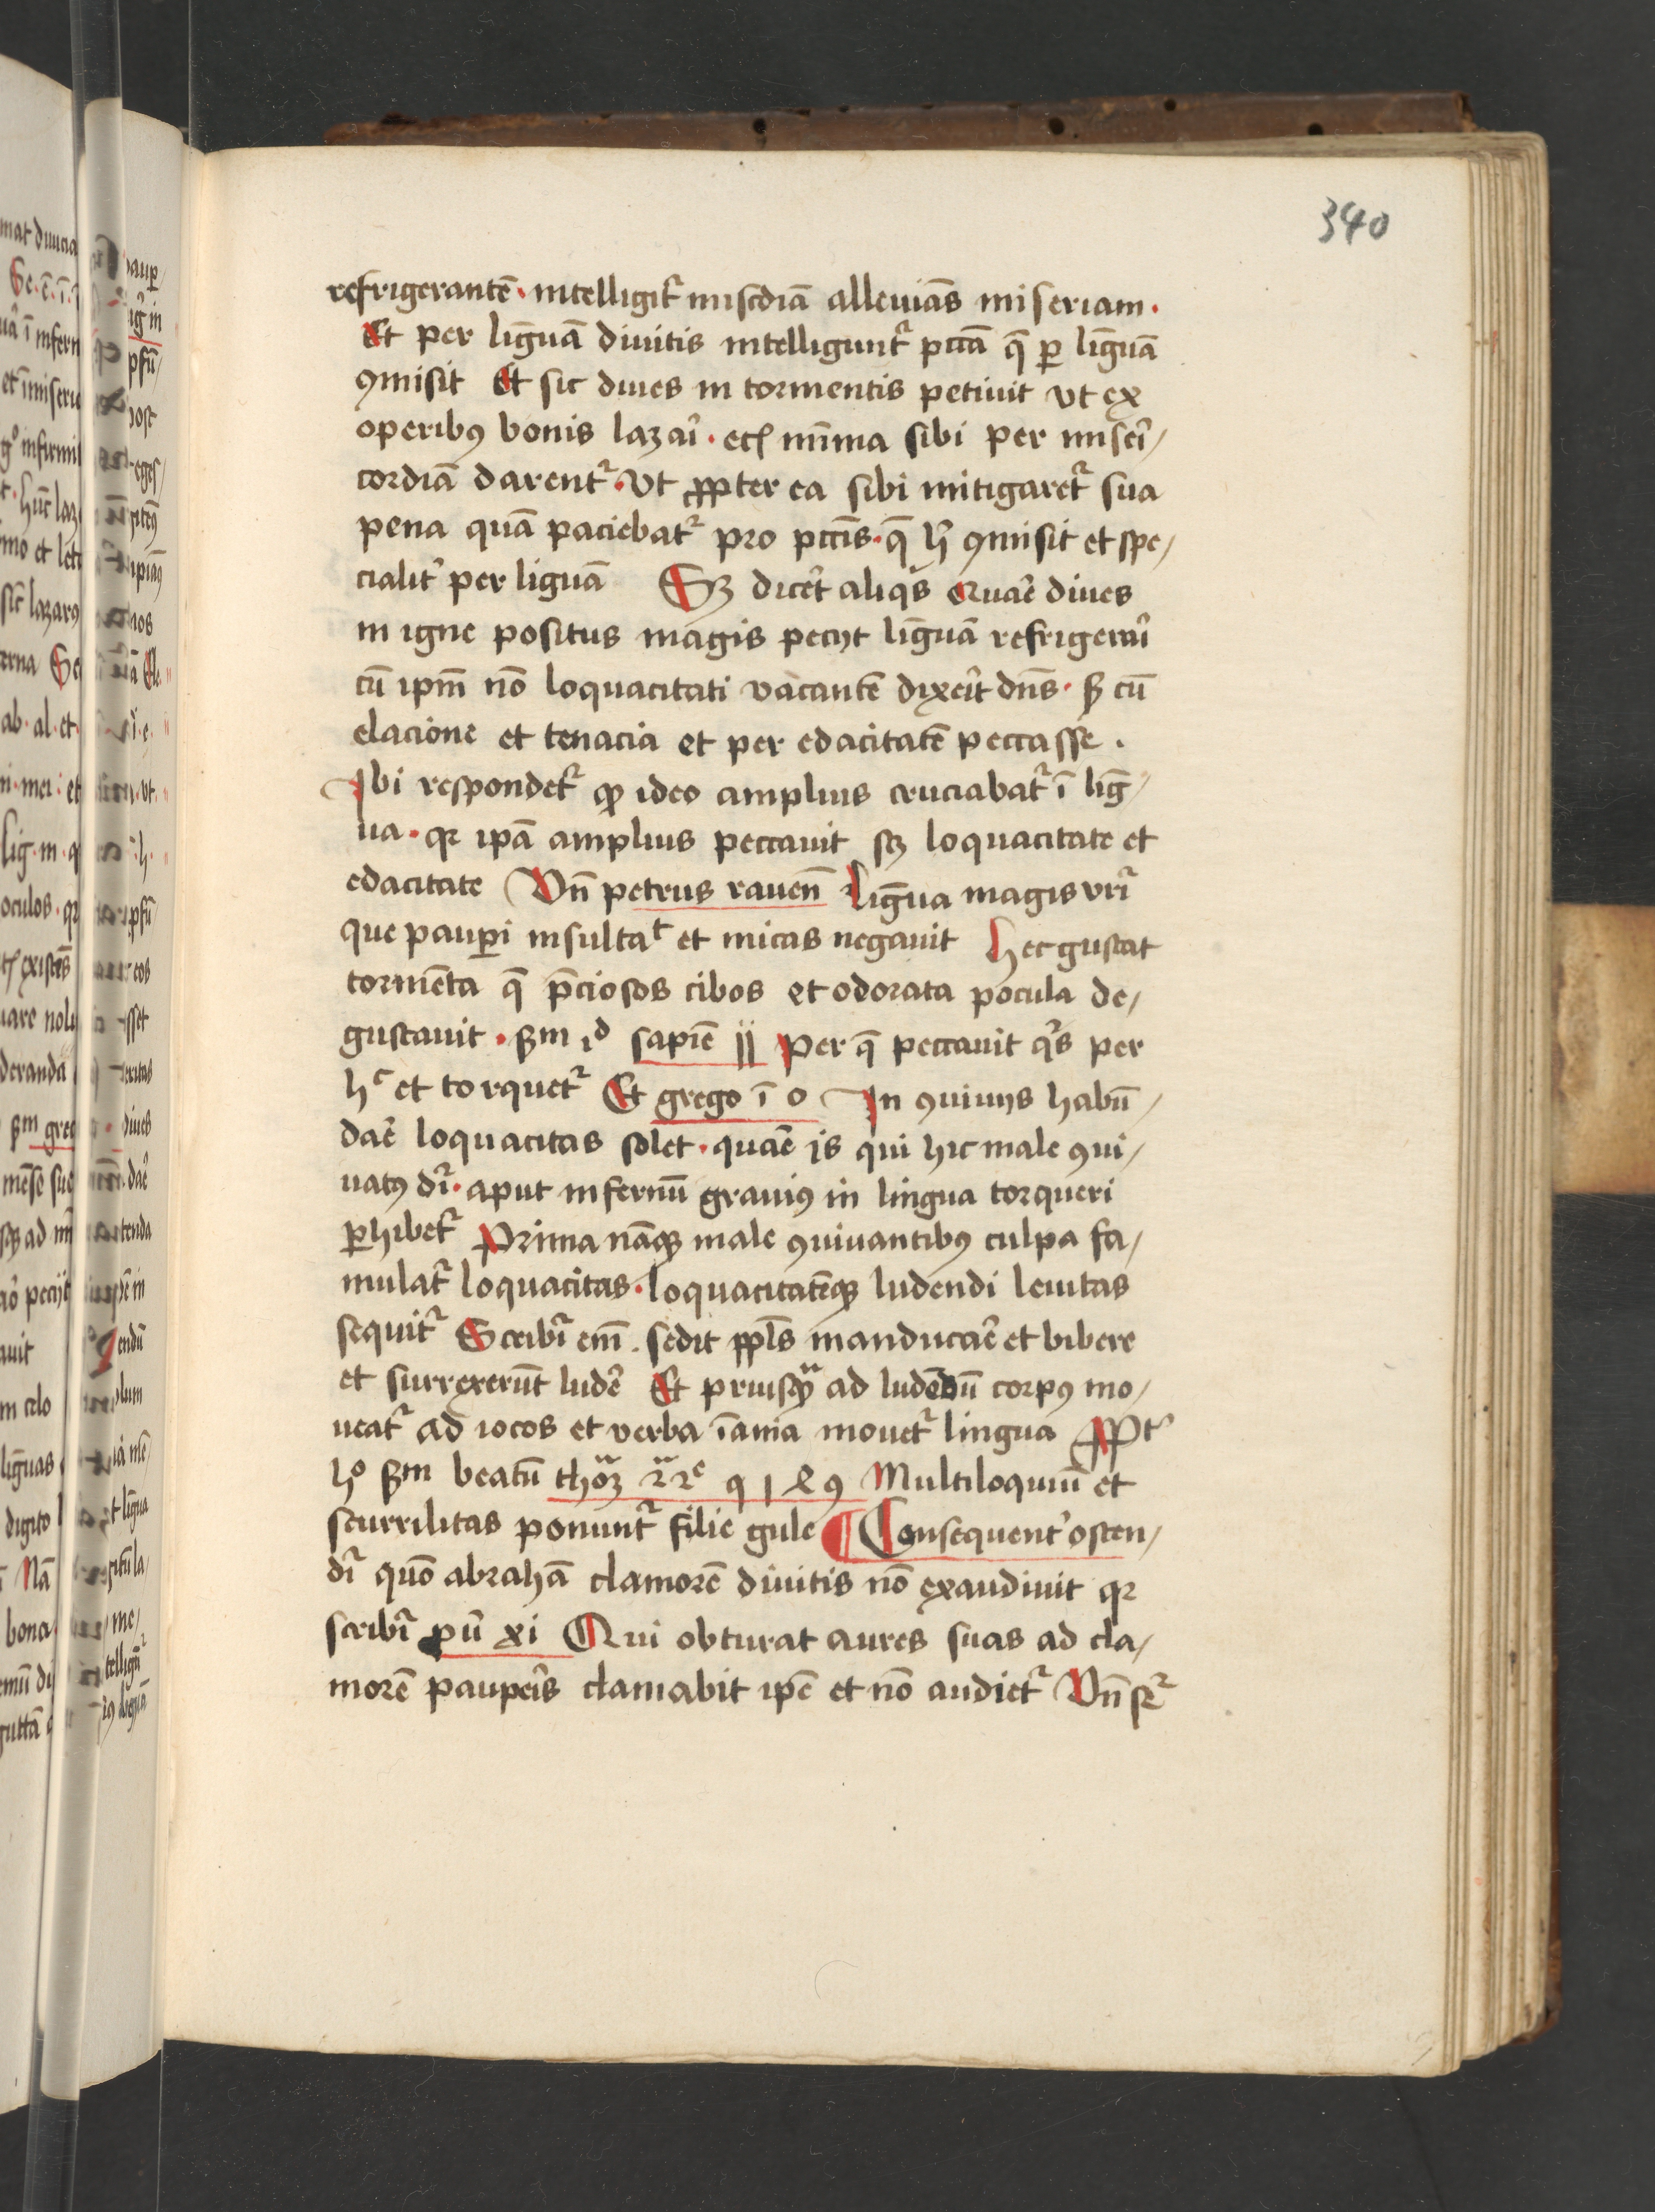 340
refrigerantē · intelligit᷑ miscdiā alleuiās miseriam ·
Et per lingūā diuitis intelligunt᷑ pctā q̄ ꝑ lingūā
ꝯmisit Et sic diues in tormentis petiuit vt ex
operibꝰ bonis lazaī · et minīma sibi per miseī/
cordiā darent᷑ · vt ꝓpter ea sibi mitigaret᷑ sua
pena quā paciebat᷑ pro pctīs · q̄ ꝯmisit et spe/
cialit᷑ per liguā Sꝫ dicēt aliqͥs Quaē diues
in igne positus magis pecijt lingūā refrigeraī
cū ipm̄ nō loquacitati vacantē dixeīt dn̄s · ẞ cū
elacione et tenacia et per edacitatē peccasse ·
Ibi respondet᷑ ꝙ ideo amplius cruciabat᷑ ī linḡ/
ua · qꝛ ipā amplius peccauit sꝫ loquacitate et
edacitate Vn̄ petrus rauen̄ Lingūa magis vrī
que pauꝑi insultat et micas negauit Hec gustat
tormēta q̄ p̄ciosos cibos et odorata pocula de/
gustauit · ẞm iᵈ sapīe ij Per q̄ peccauit qͥs per
hᶜ et torquet᷑ Et grego ī o In ꝯuiuijs habū/
daē loquacitas solet · quaē is qui hic male ꝯui/
uatꝰ dr̄ · aput infernū grauiꝰ in lingua torqueri
ꝑhibet᷑ Prima nāqꝫ male ꝯuiuantibꝰ culpa fa/
mulat᷑ loquacitas · loquacitatēqꝫ ludendi leuitas
sequit᷑ Scribr̄ em̄ · sedit ppl̄s manducaē et bibere
et surrexerūt ludē Et priusqᷓ ad ludēdū corpꝰ mo/
ueat᷑ ad iocos et verba īania mouet᷑ lingua Ppt᷑
hᵒ ẞm beatū thoꝫ 2ᵃ 2ᵉ q 1 4 8 Multiloquiū et
scurrilitas ponunt᷑ filie gule ¶ Consequent᷑ osten/
dr̄ quō abrahā clamorē diuitis nō exaudiuit qꝛ
scribr̄ pū xi Qui obturat aures suas ad cla/
morē paupeīs clamabit ipē et nō audiet᷑ Vn̄